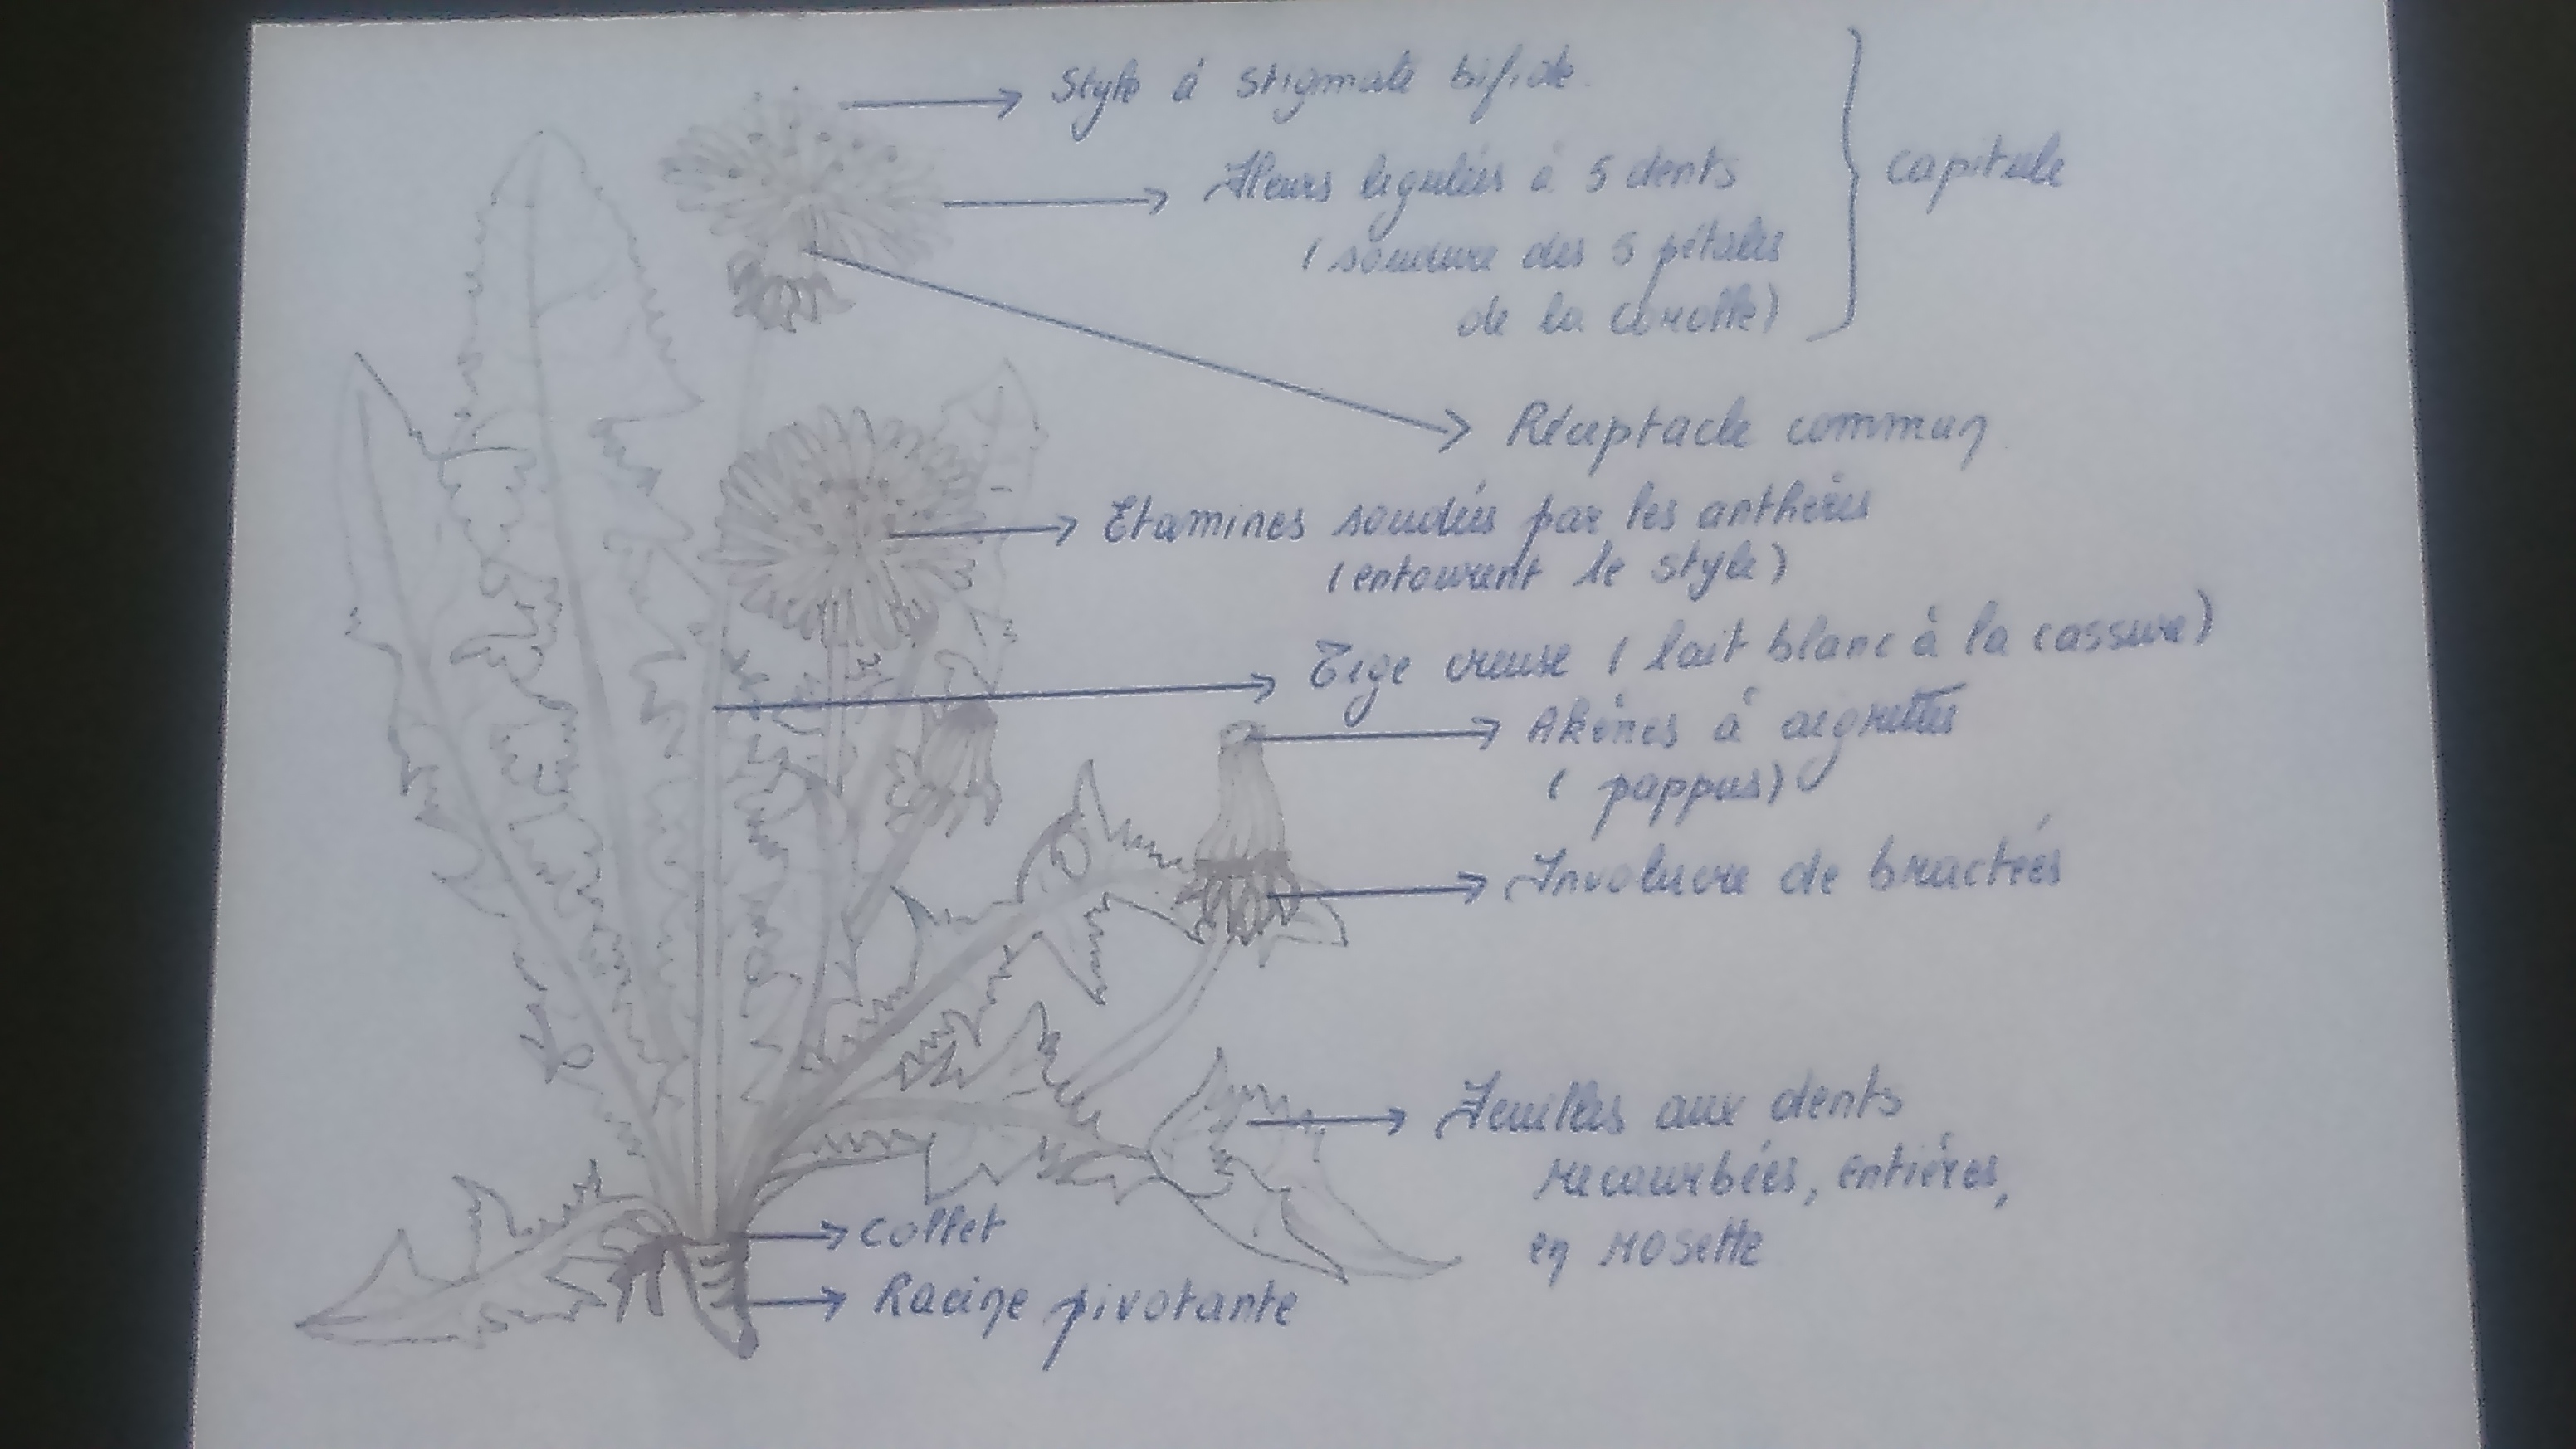 Style à stigmate bifide
Fleurs ligulées à 5 dents
(soudure des 5 pétales
de la corolle)
capitule
Réceptacle commun
Etamines soudées par les anthères
(entourent le style)
Tige creuse (lait blanc à la cassure)
Akènes à aigrettes
(pappus)
Involucre de bractées
Feuilles aux dents
recourbées, entières,
en rosette
Collet
Racine pivotante